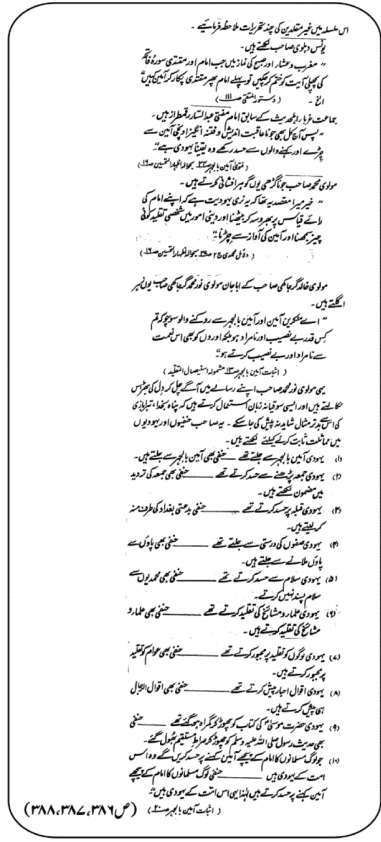 اس سلسلہ میں غیر مقلدین کی چند تحریرات ملاحظہ فرمائیے ۔
یونس دہلوی صاحب لکھتے ہیں۔
" مغرب و عشاء اور صبح کی نماز میں جب امام اور مقتدی سورۂ فاتحہ
کی پچھلی آیت کو ختم کر چکیں تو پہلے امام پھر مقتدی پکار کر آمین کہیں"
الخ ۔ ( دستور المتقی صـ١١١ )
جماعت غرباء اہلحدیث کے سابق امام مفتی عبدالستار رقمطراز ہیں۔
" پس آج کل بھی جو ناعاقبت اندیش و فتنہ انگیز اونچی آمین سے
چڑے اور کہنے والوں سے حسد رکھے وہ یقیناً یہودی ہے"
( فتویٰ آمین بالجہر صـ٣٢ بحوالہ اظہار التحسین صـ١٦ )
مولوی محمد صاحب جونا گڑھی یوں گوہر افشانی کرتے ہیں ۔
" غیر میرا مقصد یہ تھا کہ یہ نری یہودیت ہے کہ اپنے امام کی
رائے قیاس پر بھروسہ کر بیٹھنا اور دینی امور میں شخصی تقلید کوئی
چیز سمجھنا اور آمین کی آواز سے چڑنا ۔"
( دلائل محمدی ج٢ بحوالہ اظہار التحسین صـ١٦ )
مولوی خالد گرجاکھی صاحب کے ابا جان مولوی نور محمد گرجاکھی صاحب یوں زہر
اگلتے ہیں ۔
" اے منکرین آمین اور آمین بالجہر سے روکنے والو سوچو کہ تم
کس قدر بے نصیب اور نامراد ہو بلکہ اوروں کو بھی اس نعمت
سے نامراد اور بے نصیب کرتے ہو"
( اثبات آمین بالجہر مشمولہ استیصال التقلید )
یہی مولوی نور محمد صاحب اپنے رسالے میں آگے چل کر دل کی بھڑاس
نکالتے ہیں اور ایسی سوقیانہ زبان استعمال کرتے ہیں کہ پناہ بخدا، تبرا بازی
کی اس سے بدتر مثال شاید نہ پیش کی جا سکے ۔ یہ صاحب حنفیوں اور یہودیوں
میں مماثلت ثابت کرنے کیلئے لکھتے ہیں۔
(١) یہودی آمین بالجہر سے جلتے تھے ــــــ حنفی بھی آمین بالجہر سے جلتے ہیں۔
(٢) یہودی جمعہ پڑھنے سے حسد کرتے تھے ــــــ حنفی بھی جمعہ کی تردید
میں مضمون لکھتے ہیں۔
(٣) یہودی قبلہ پر حسد کرتے تھے ــــــ حنفی بدعتی بغداد کی طرف منہ
کر لیتے ہیں۔
(٤) یہودی صفوں کی درستی سے جلتے تھے ــــــ حنفی بھی پاؤں سے
پاؤں ملانے سے جلتے ہیں۔
(٥) یہودی سلام سے حسد کرتے تھے ــــــ حنفی بھی محمدیوں سے
سلام پسند نہیں کرتے۔
(٦) یہودی علماء و مشائخ کی تقلید کرتے تھے ــــــ حنفی بھی علماء و
مشائخ کی تقلید کرتے ہیں۔
(٧) یہودی لوگوں کو تقلید پر مجبور کرتے تھے ــــــ حنفی بھی عوام کو تقلید
پر مجبور کرتے ہیں۔
(٨) یہودی اقوال احبار پیش کرتے تھے ــــــ حنفی بھی اقوال الرجال
ہی پیش کرتے ہیں۔
(٩) یہودی حضرت موسیٰؑ کی کتاب کو چھوڑ کر گمراہ ہو گئے تھے ــــــ حنفی
بھی حدیث رسول صلی اللہ علیہ وسلم کو چھوڑ کر صراط مستقیم بھول گئے۔
(١٠) جو لوگ مسلمانوں کا امام کے پیچھے آمین کہنے پر حسد کریں گے وہ اس
امت کے یہودی ہیں ــــــ حنفی لوگ مسلمانوں کا امام کے پیچھے
آمین کہنے پر حسد کرتے ہیں لہٰذا یہی اس امت کے یہودی ہیں"
( اثبات آمین بالجہر صـ٢٠ ) (ص ٣٨٦،٣٨٧،٣٨٨)